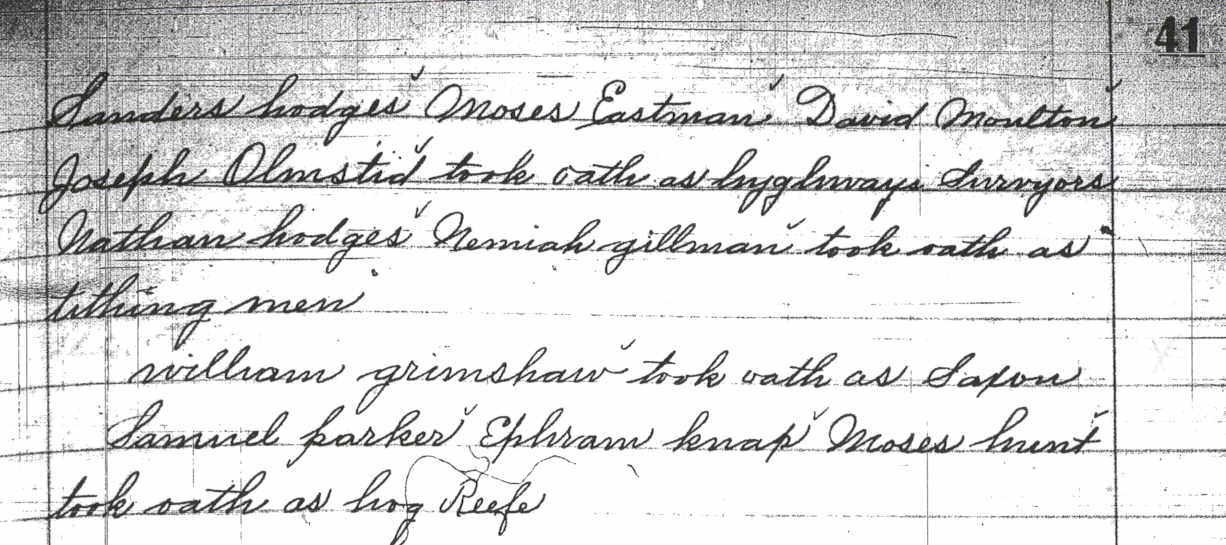 41
Sanders hodges Moses Eastman David Moulton
Joseph Olmstid took oath as hyghways Survyors
Nathan hodges Nemiah gillman took oath as
tithing men
william grimshaw took oath as Saxon
Samuel parker Ephram knap Moses hunt
took oath as hog Reefe